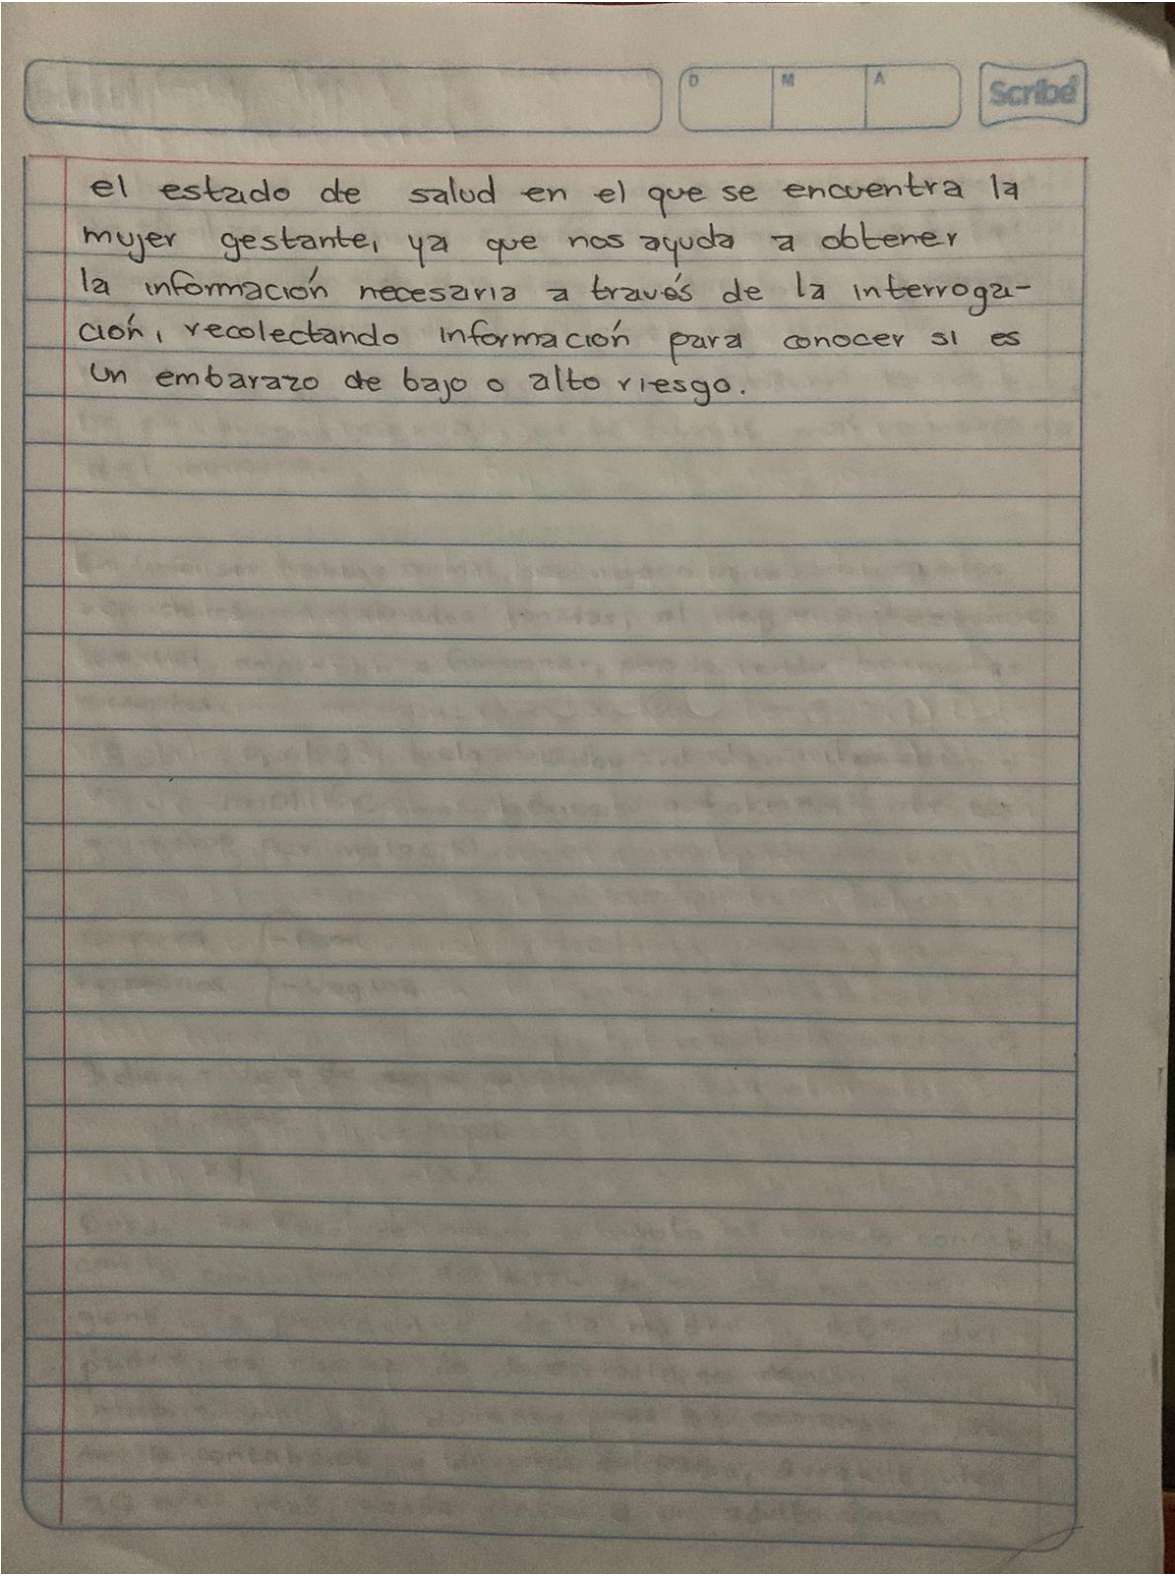 D M A Scribe
el estado de salud en el que se encuentra la
mujer gestante, ya que nos ayuda a obtener
la información necesaria a través de la interroga-
ción, recolectando información para conocer si es
un embarazo de bajo o alto riesgo.